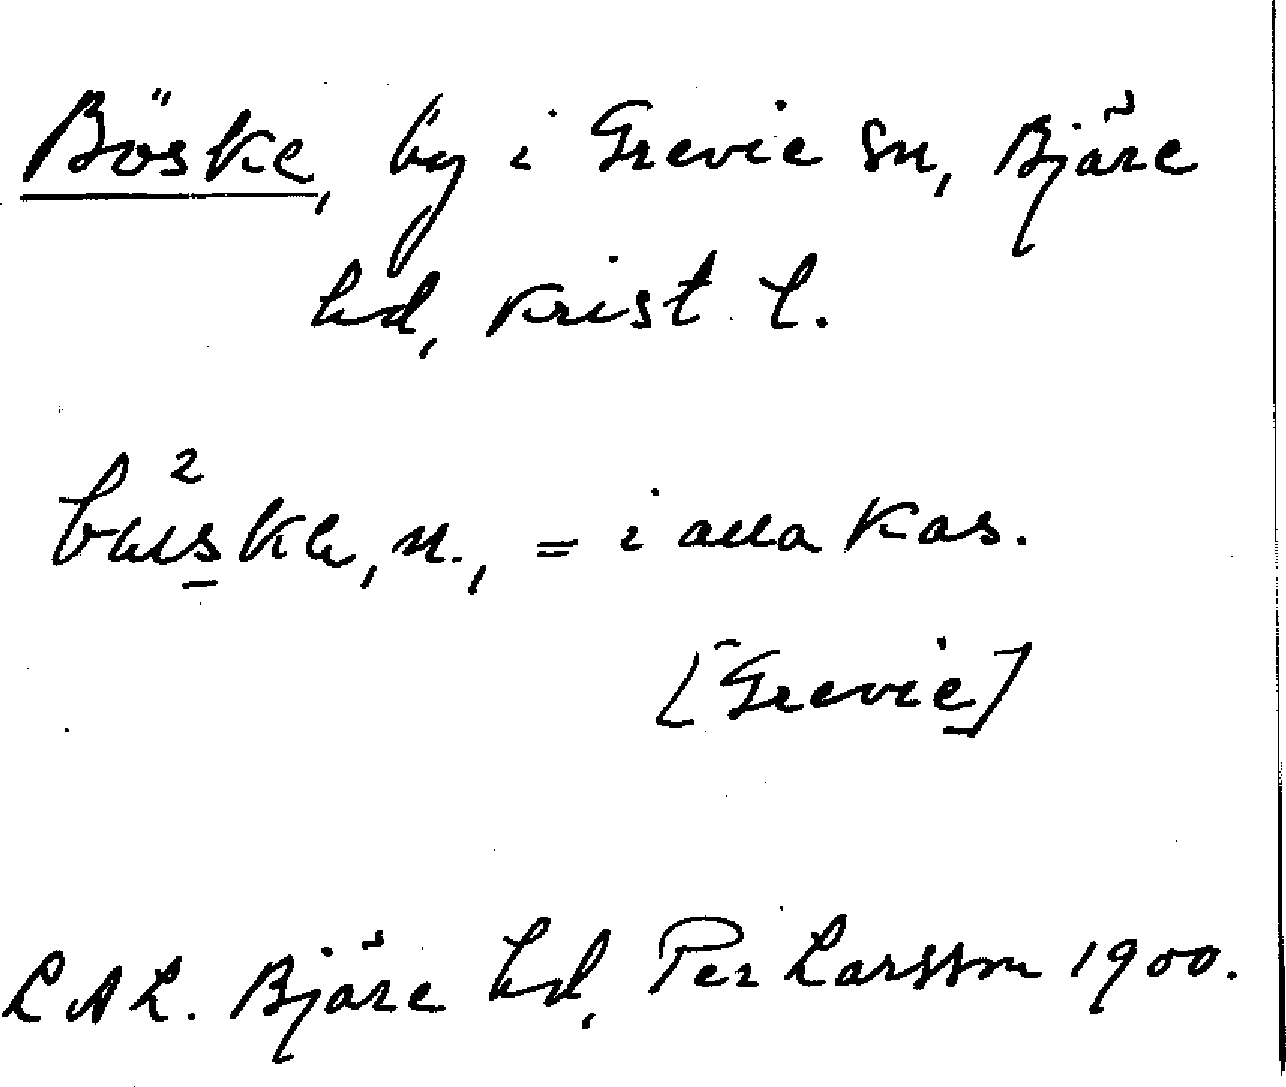 Böske, by i Grevie sn, Bjäre
hd, Krist. l.
i alla kas.
[Grevie]
LAL. Bjäre hd, Per Larsson 1900.